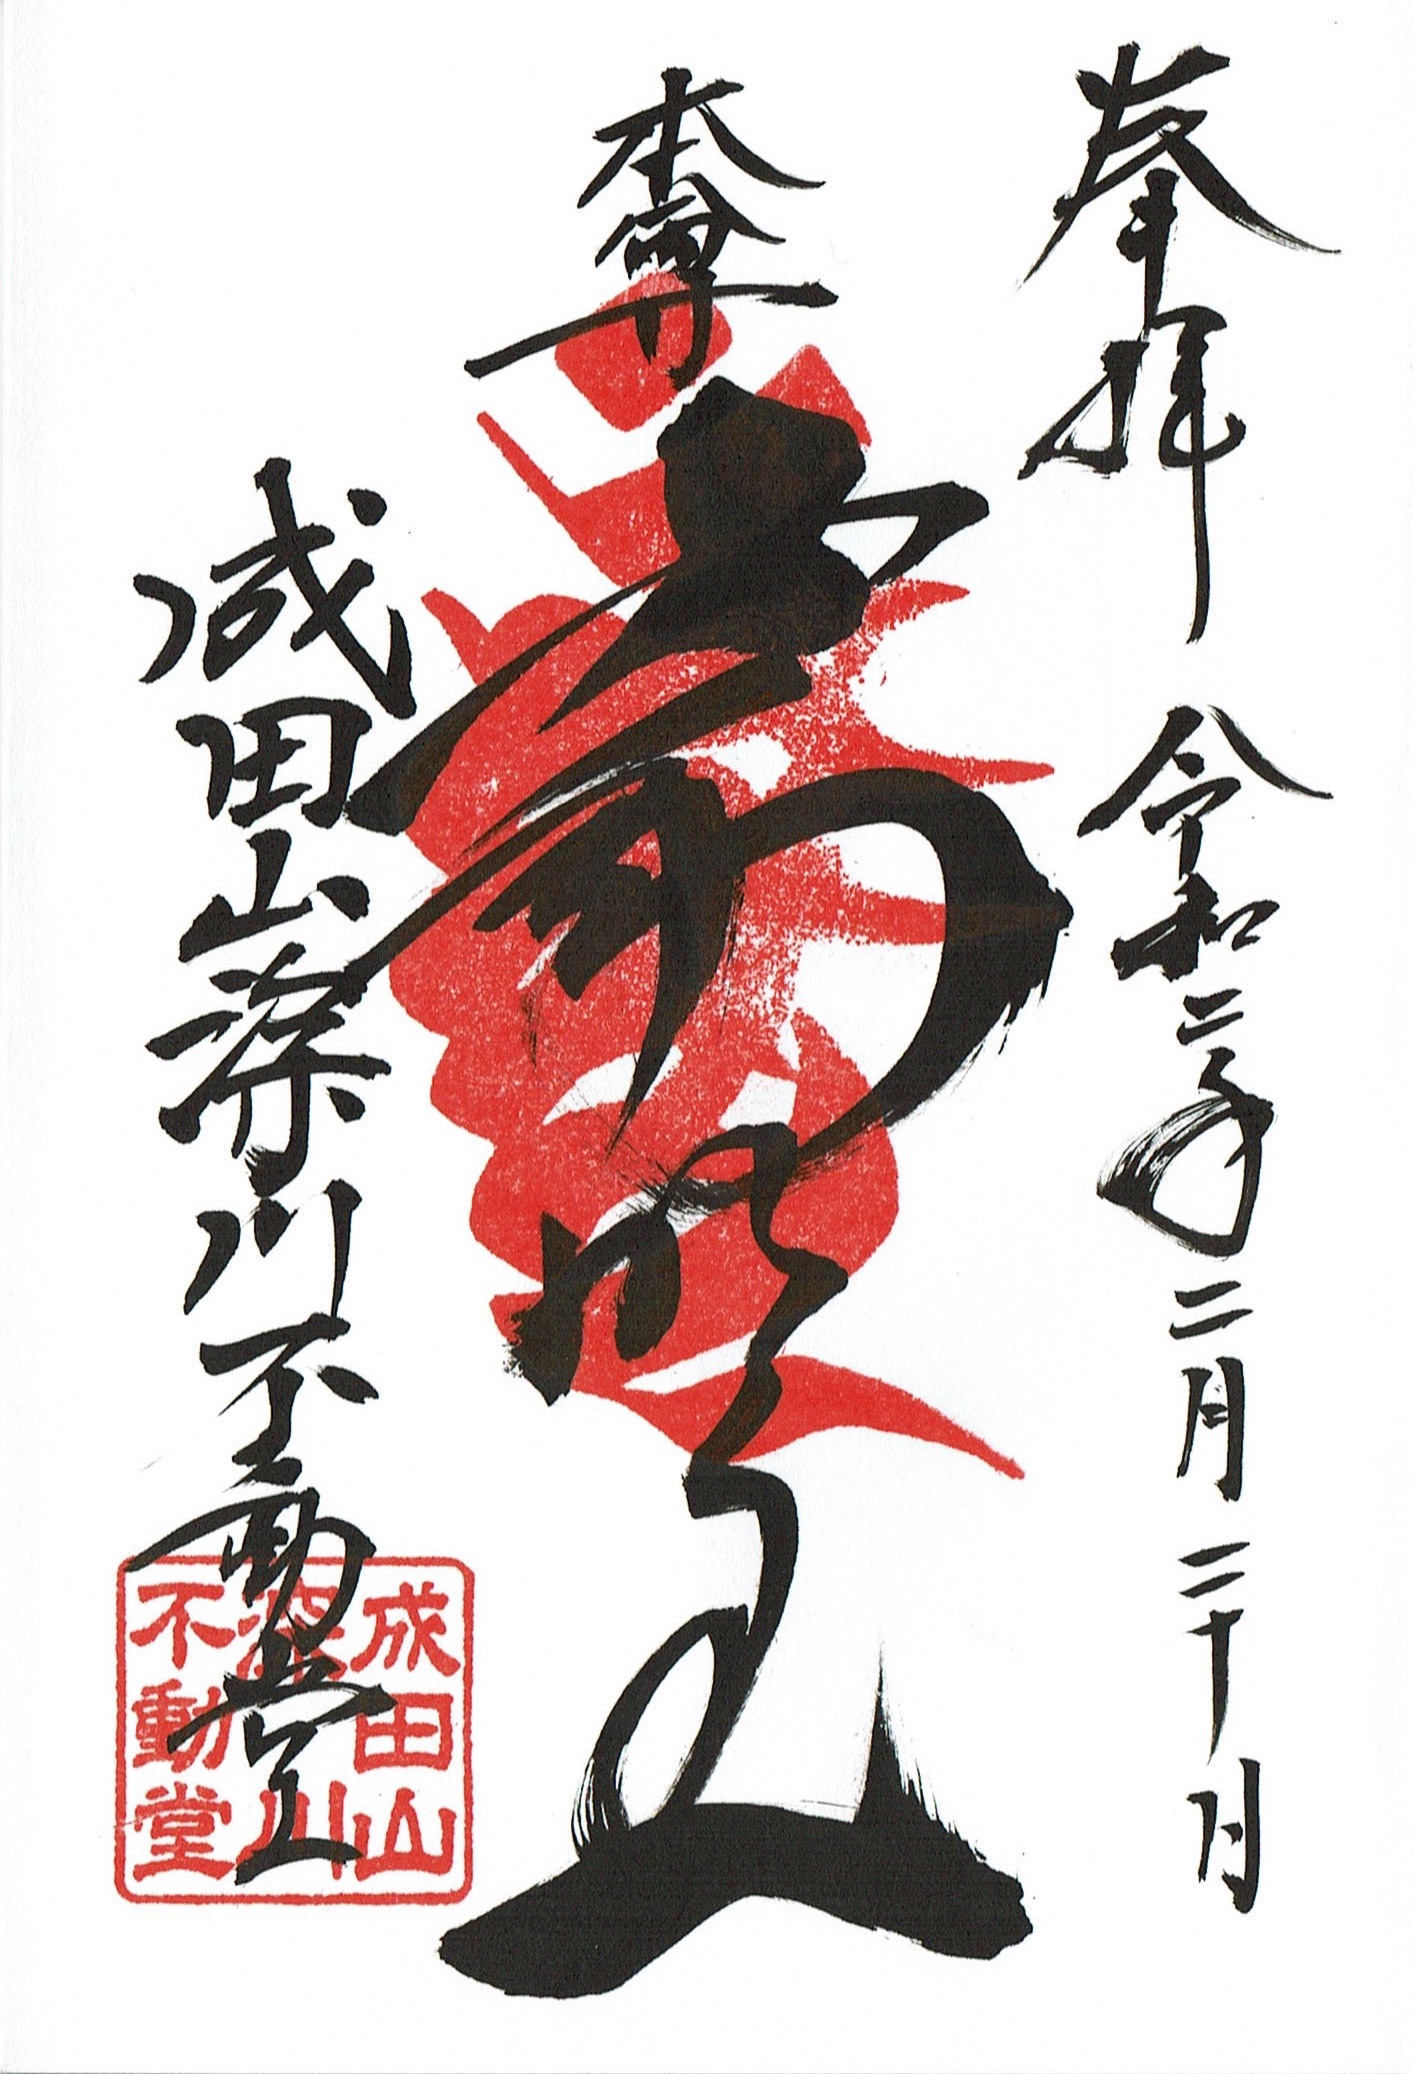 奉拝 令和二年二月二十日
本尊 不動明王
成田山深川不動堂
成田山
深川
不動堂